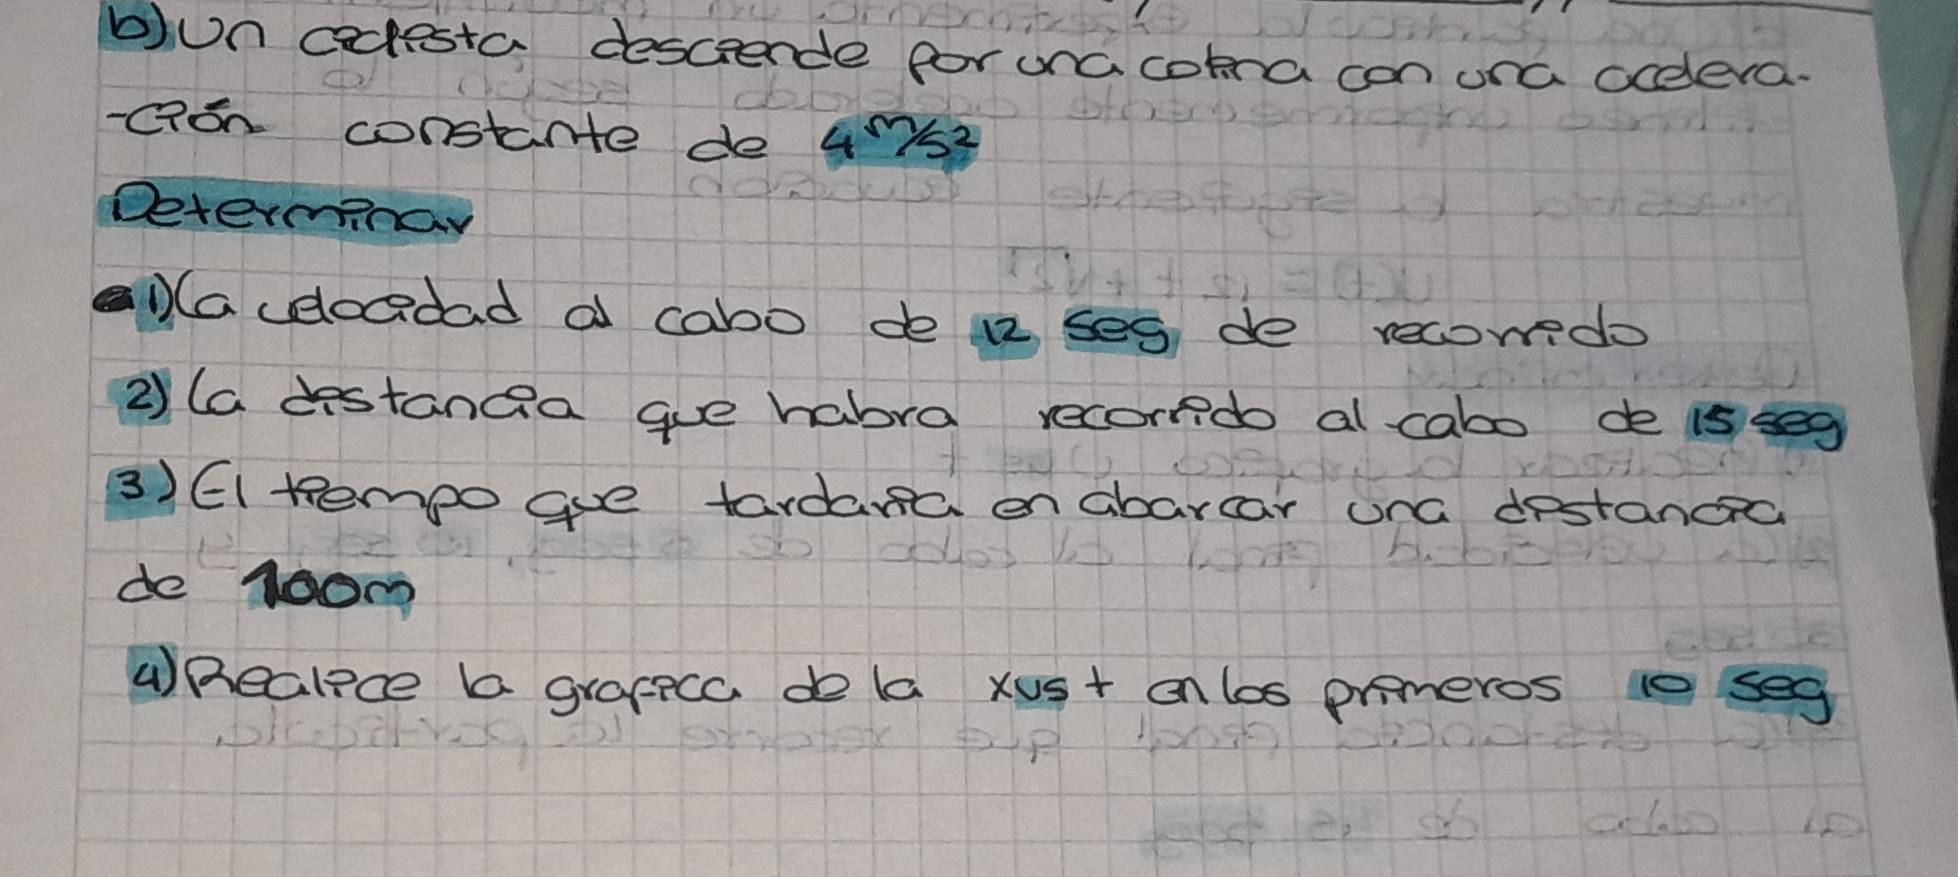 b) Un ciclista desciende por una colina con una acelera-
-ción constante de 4 m/s²
Determinar
1) la velocidad al cabo de 12 seg de recorrido
2) la distancia que habra recorrido al cabo de 15 seg
3) El tiempo que tardaria en abarcar una distancia
de 100m
4) Realice la grafica de la x vs t en los primeros 10 seg